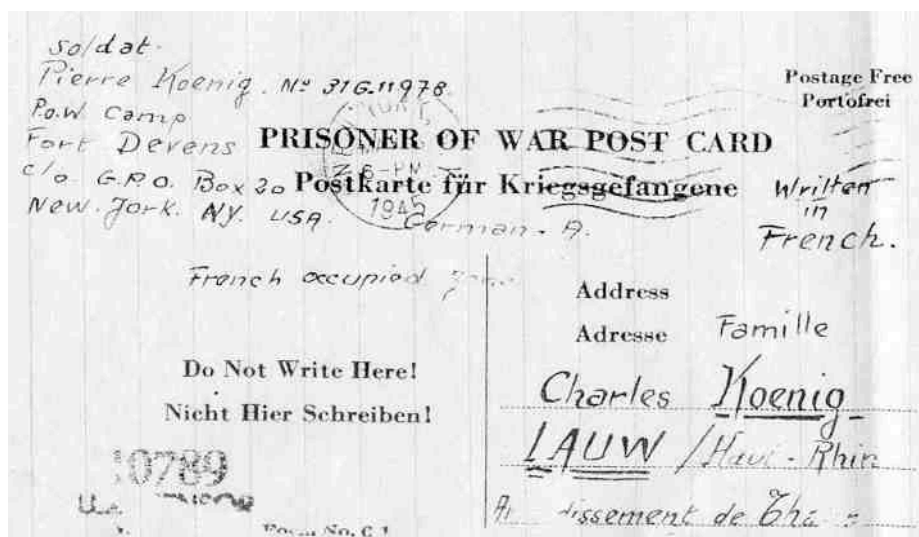 Soldat.
Pierre Koenig. Nº 31G.11978.
P.o.W Camp
Fort Devens
c/o. G.P.O. Box 20
New. York. NY. USA.
Postage Free
Portofrei
PRISONER OF WAR POST CARD
Postkarte für Kriegsgefangene
1945
German. A.
Written
in
French.
French occupied zone
Do Not Write Here!
Nicht Hier Schreiben!
0789
Address
Adresse
Famille
Charles Koenig
LAUW / Haut-Rhin
de